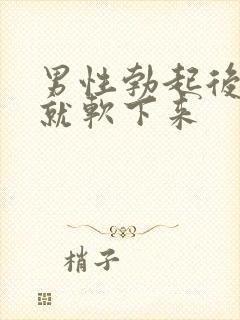 男性勃起後
就軟下来
梢子